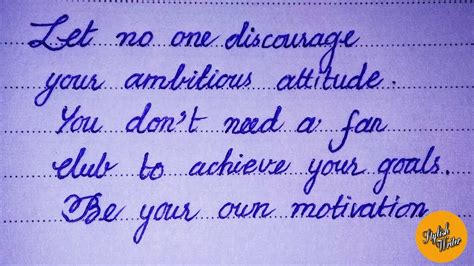 Let no one discourage
your ambitious attitude.
You don't need a fan
club to achieve your goals.
Be your own motivation
Stylish
Writer